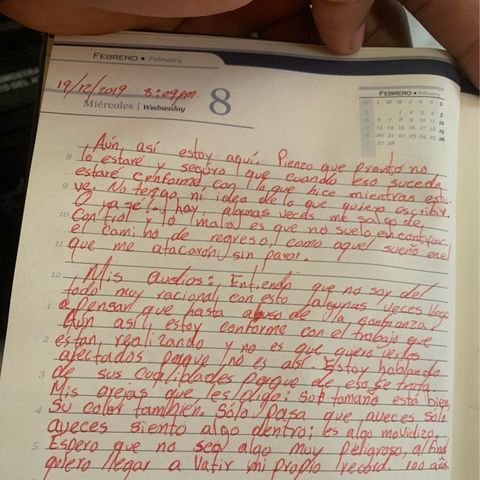 FEBRERO • February
19/12/2019 8:09pm
Miércoles | Wednesday
8
FEBRERO • February
Aún, así estoy aquí. Pienzo que pronto no
lo estaré y seguro que cuando eso suceda
estaré conforme con lo que hice mientras estu-
ve. No tengo ni idea de lo que quiero escribir.
O ya sé!, hay algunas veces me salgo de
control y lo malo es que no suelo encontrar
el camino de regreso, como aquel sueño en el
que me atacarón sin parar.
Mis audios: Entiendo que no soy del
todo muy racional, con esto algunas veces llego
a pensar que hasta abuso de la confianza.
Aún así, estoy conforme con el trabajo que
estan realizando y no es que quero verlos
afectados porque no es así. Estoy hablando
de sus cualidades porque de eso se trata.
Mis orejas que les digo: Sot tamaño está bien
Su color tambien. Sólo pasa que aveces sólo
aveces siento algo dentro; les algo movidizo.
Espero que no sea algo muy peligroso, al final
quiero llegar a Vatir mi propio record. 100 años
8
9
10
11
12
1
2
3
4
5